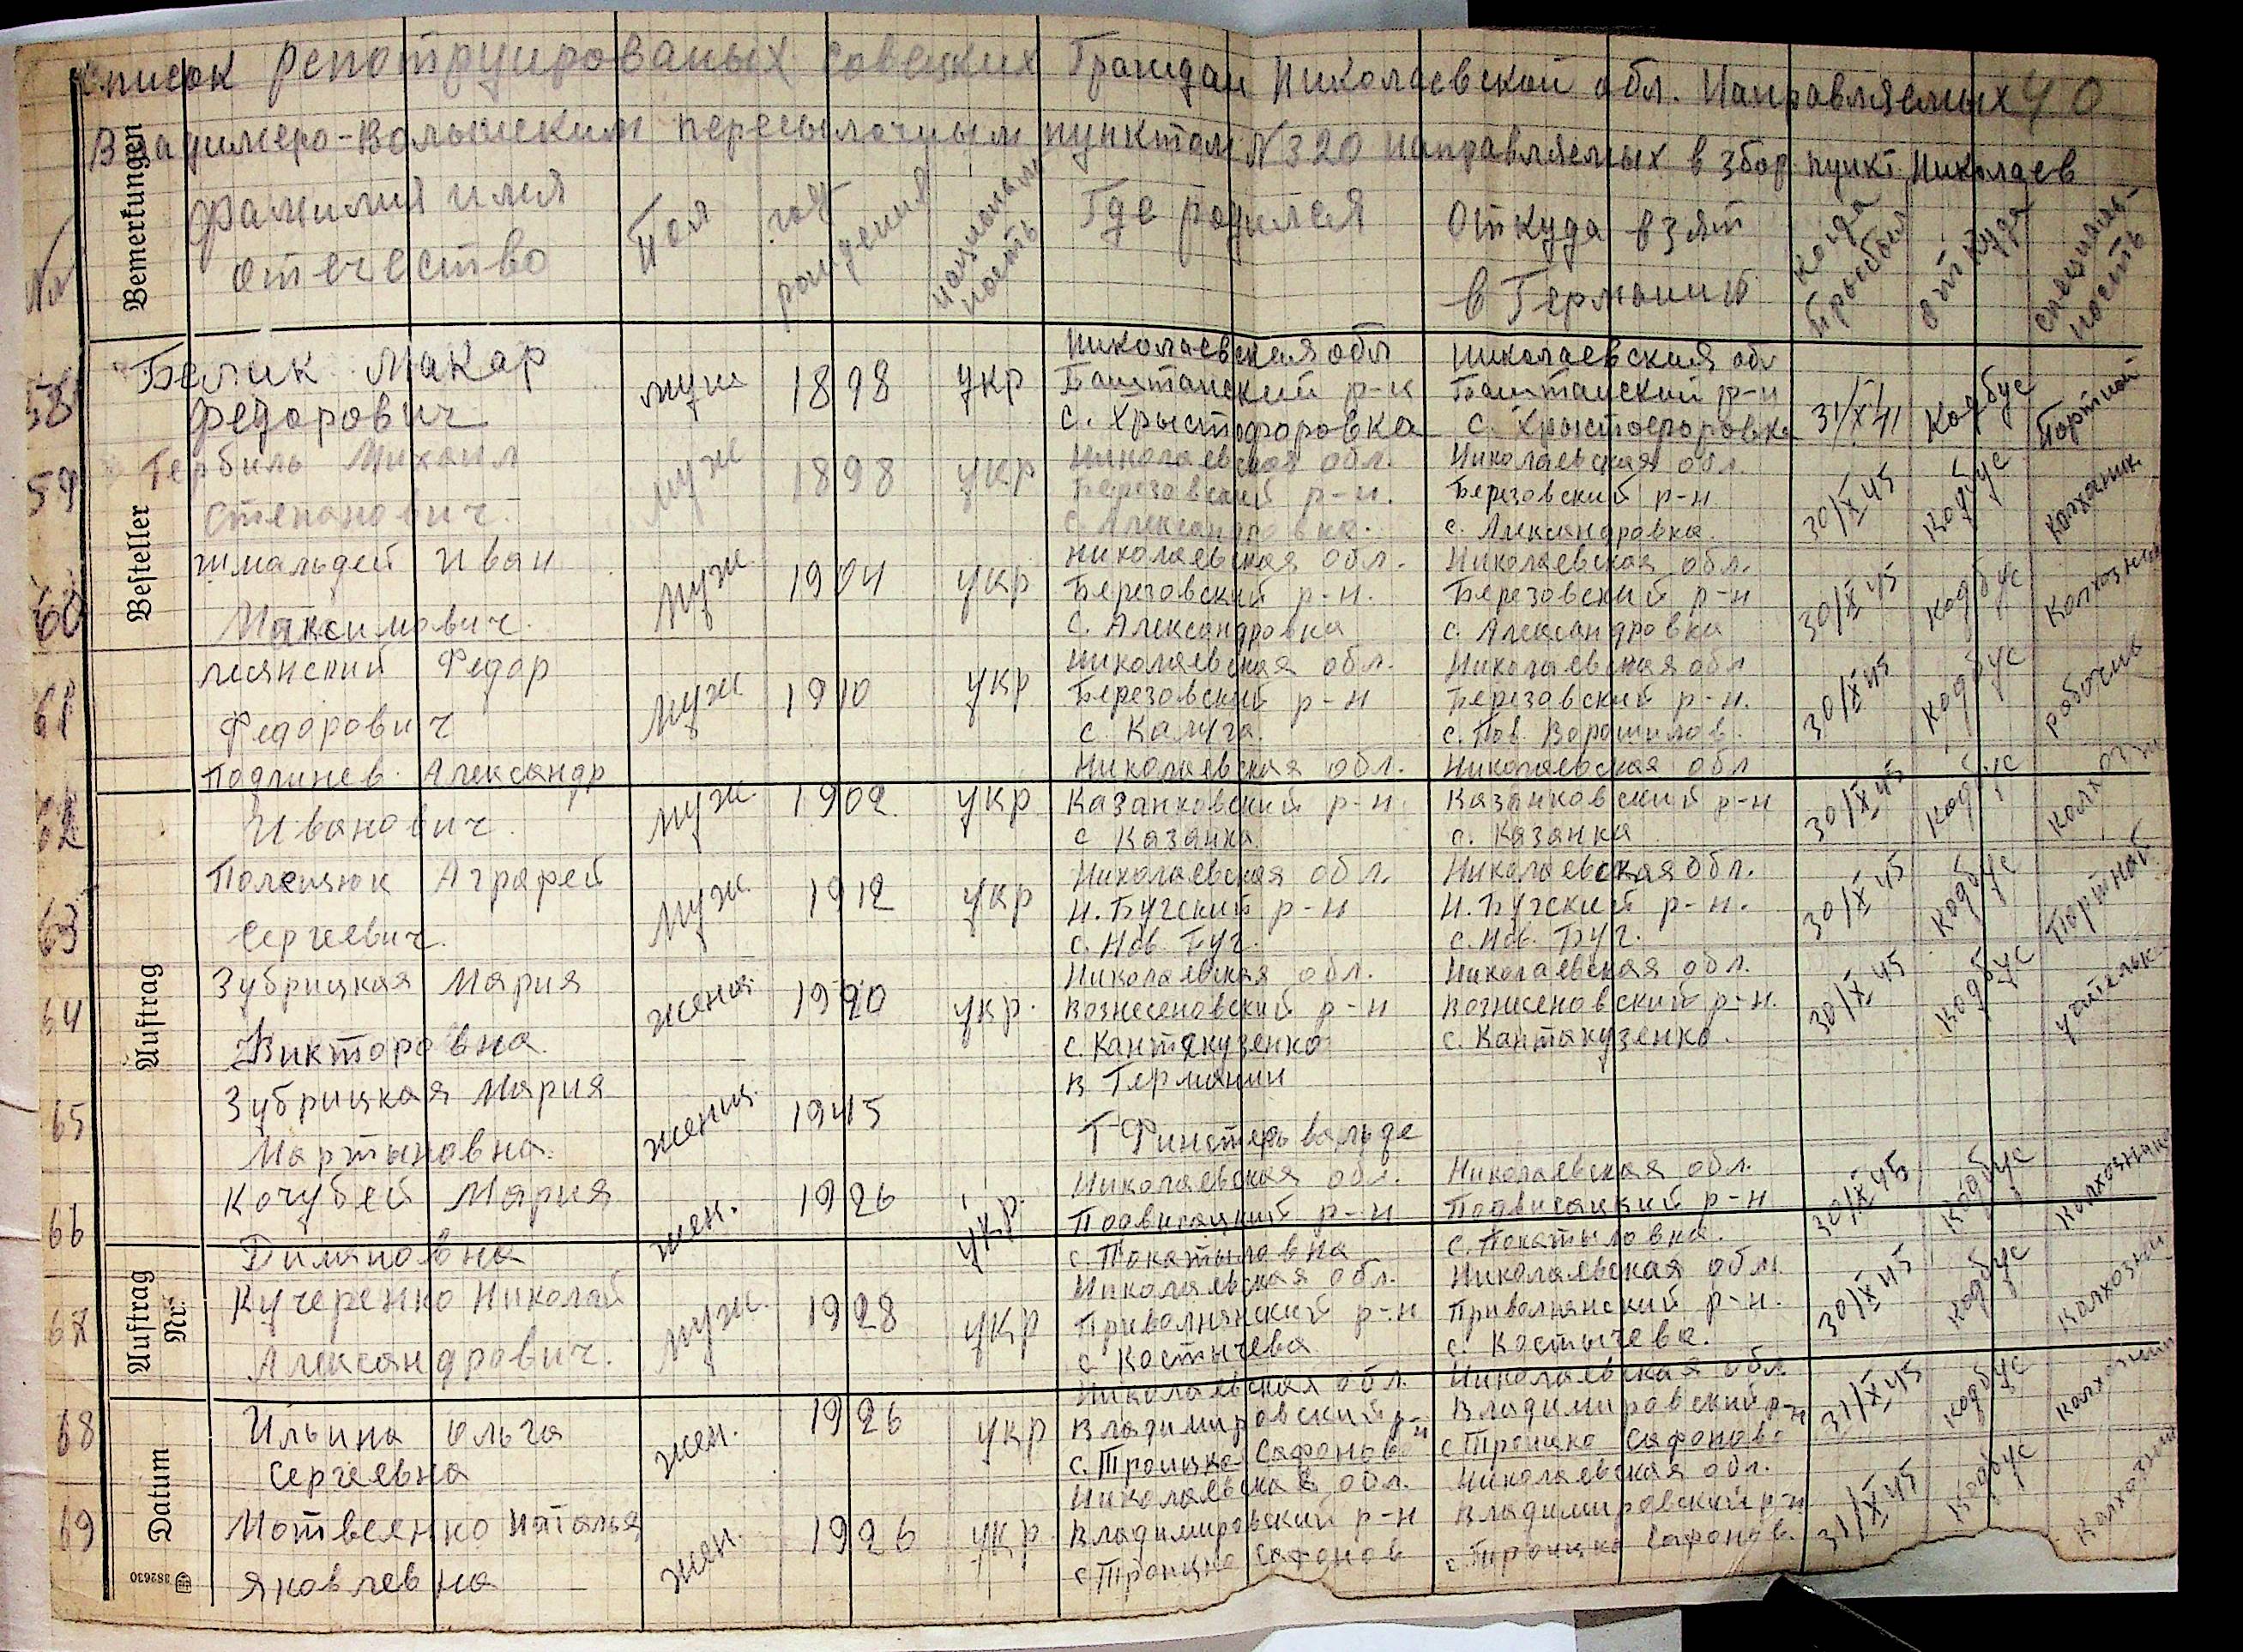 Список репотруированых совецких Граждан Николаевской обл. Направляемых 40
Владимеро-Волынским пересылочным пунктом N 320 направляемых в збор пункт Николаев
Bemerkungen
Besteller
Auftrag
Auftrag Nr.
Datum
382630
фамилия имя отечество
Пол
год рождения
национальность
Где родился
Откуда взят в Германию
когда прыбыл
откуда
специяльность
58 Белик Макар муж 1898 укр Николаевская обл Николаевская обл 31/X 41 Кодбус Портной
Федорович Баштанский р-н Баштанский р-н
с. Хрыстофоровка с. Хрыстофоровка
59 Гербиль Михаил муж 1898 укр Николаевская обл. Николаевская обл. 30/X 45 Кодбус Колхозник
Степанович. Березовский р-н. Березовский р-н
с. Александровка. с. Александровка.
60 Шмальдей Иван муж 1904 укр Николаевская обл. Николаевская обл. 30/X 45 Кодбус Колхозник
Максимович. Березовский р-н. Березовский р-н
с. Александровка с. Александровка
61 Федор муж 1910 укр Николаевская обл. Николаевская обл 30/X 45 Кодбус робочий
Федорович Березовский р-н Березовский р-н.
с. Калуга. с. Ворошилов.
62 Подлинев. Александр муж 1902 укр Николаевская обл. Николаевская обл 30/X 45 Кодбус Колхозн
Иванович. Казанковский р-н. Казанковский р-н
с Казанка. с. Казанка
63 Полецюк Аграфей муж 1912 укр Николаевская обл. Николаевская обл. 30/X 45 Кодбус Портной
Сергеевич. Н. Бугский р-н Н. Бугский р-н.
с. Нов. Буг. с. Нов. Буг.
64 Зубрицкая Мария женщ. 1920 укр. Николаевская обл. Николаевская обл. 30/X 45 Кодбус учительк-
Викторовна. Вознесеновский р-н Вознесеновский р-н.
с. Кантакузенко с. Кантакузенко.
65 Зубрицкая Мария женщ. 1945 в Германии
Мартыновна. Г Финстервальде
66 Кочубей Мария жен. 1926 укр. Николаевская обл. Николаевская обл. 30/X 45 Кодбус Колхозница
Димяновна Подвисацкий р-н Подвисацкий р-н
с. Покатыловка с. Покатыловка.
67 Кучеренко Николай муж. 1928 укр Николаевская обл. Николаевская обл. 30/X 45 Кодбус Колхозник
Александрович. Приволнянский р-н Приволнянский р-н.
с. Костычева с. Костычева.
68 Ильина Ольга жен. 1926 укр Николаевская обл. Николаевская обл 31/X 45 Кодбус Колхозниц
Сергеевна Владимировский р-н Владимировский р-н
с. Троицко Сафоново с Троицко Сафоново
69 Мотвеенко Наталья жен. 1926 укр. Николаевская обл. Николаевская обл. 31/X 45 Кодбус Колхозниц
Яковлевна Владимировский р-н Владимировский р-н
с Троицко Сафонов с. Троицко Сафонов.